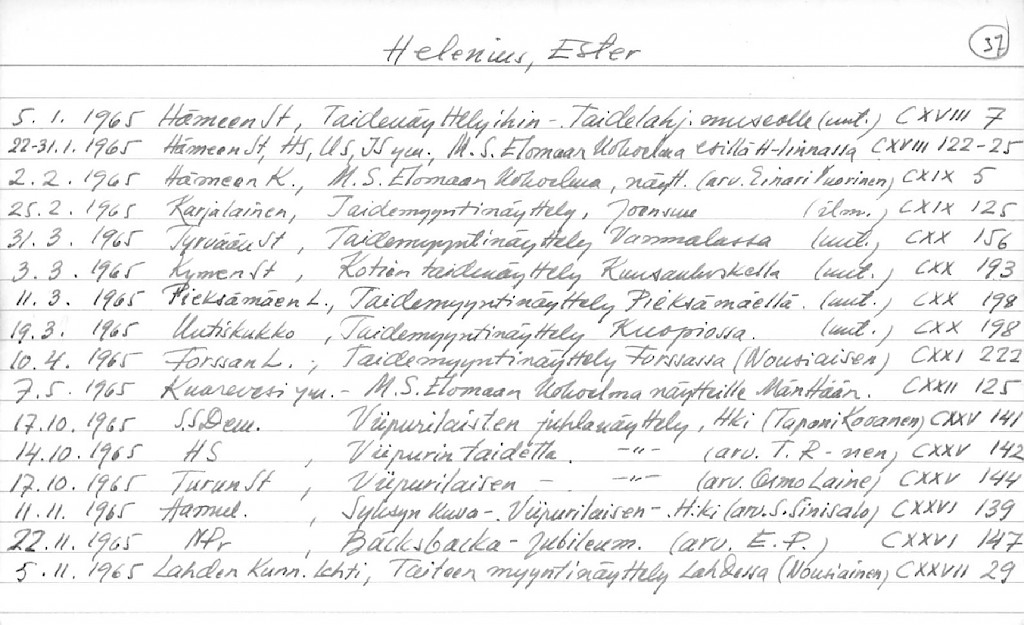 Helenius, Ester 37
5. 1. 1965 Hämeen St, Taidenäyttelyihin - Taidelahj. museolle (uut.) CXVIII 7
22-31.1. 1965 Hämeen St, HS, US, IS ym., M.S. Elomaan Kokoelma esillä H-linnassa CXVIII 122-25
2. 2. 1965 Hämeen K., M.S. Elomaan Kokoelma, näytt. (arv. Einari Vuorinen) CXIX 5
25. 2. 1965 Karjalainen, Taidemyyntinäyttely, Joensuu (ilm.) CXIX 125
31. 3. 1965 Tyrvään St, Taidemyyntinäyttely Vammalassa (uut.) CXX 156
3. 3. 1965 Kymen St, Kotien taidenäyttely Kuusankoskella (uut.) CXX 193
11. 3. 1965 Pieksämäen L., Taidemyyntinäyttely Pieksämäellä. (uut.) CXX 198
19. 3. 1965 Uutiskukko, Taidemyyntinäyttely Kuopiossa. (uut.) CXX 198
10. 4. 1965 Forssan L., Taidemyyntinäyttely Forssassa (Nousiaisen) CXXI 222
7. 5. 1965 Kuorevesi ym. - M.S. Elomaan Kokoelma näytteille Mänttään. CXXII 125
17.10. 1965 S.S Dem. Viipurilaisten juhlanäyttely, Hki (Tapani Kovanen) CXXV 141
14.10. 1965 HS, Viipurin taidetta. -"- (arv. T. R-nen) CXXV 142
17.10. 1965 Turun St, Viipurilaisen - -"- (arv. Osmo Laine) CXXV 144
11. 11. 1965 Aamul., Syksyn kuva - Viipurilaisen - Hki (arv. S. Sinisalo) CXXVI 139
22. 11. 1965 NPr, Bäcksbacka - Jubileum. (arv. E. P.) CXXVI 147
5. 11. 1965 Lahden Kunn. lehti, Taiteen myyntinäyttely Lahdessa (Nousiainen) CXXVII 29